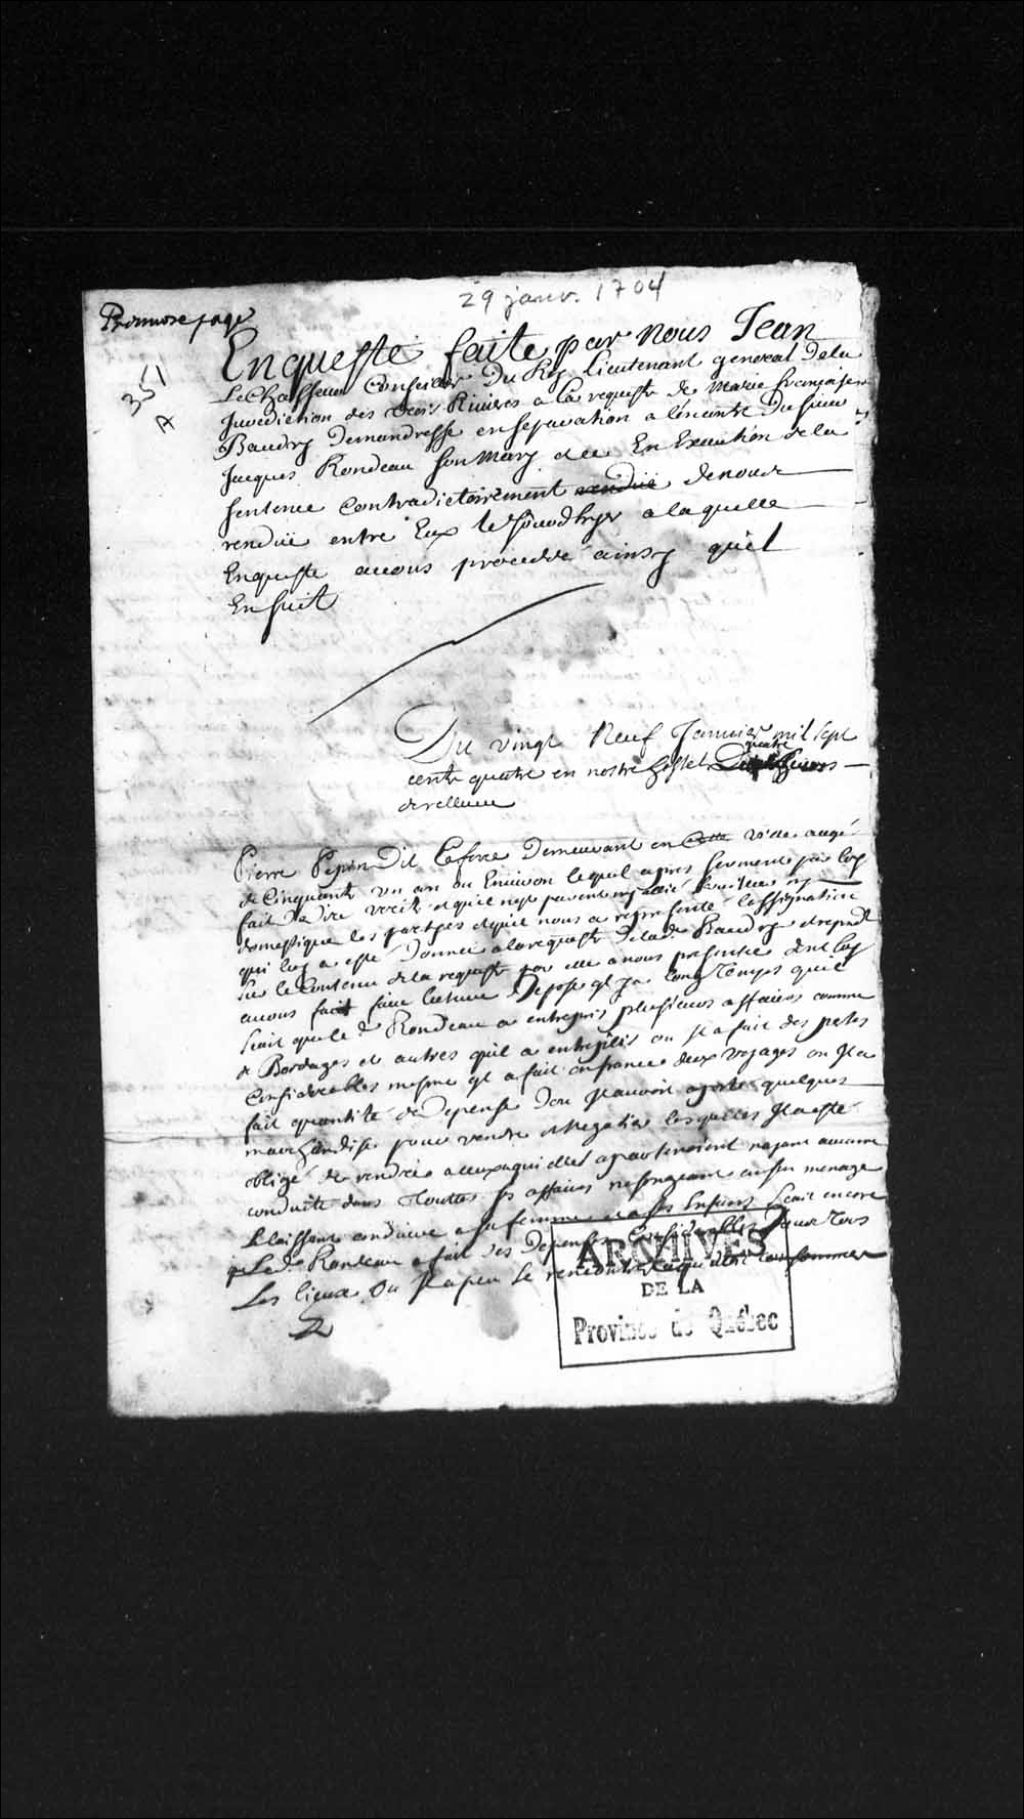 29 janv. 1704
Premiere page
351
A
Enqueste faite par nous Jean
Le Chasseur Conseiller Du Roy Lieutenant general de la
Jurediction des trois Rivieres a la requeste de Marie françoise
Baudry Demandresse en separation a lencontre du sieur
Jacques Rondeau son mary et ce En Execution de la
sentence contradictoirement rendüe de nous
rendüe entre Eux le Jourdhyer a laquelle
Enqueste avons proceddé ainsy quil
En suit
Du vingt Neuf Janvier mil sept
cents quatre en nostre hostel quatre heures
de relevee
Pierre Pepin Dit Laforce Demeurant en Cette ville aagé
de Cinquante un an ou Environ lequel apres serment par luy
fait de dire verité et quil nest parent ny allié serviteur ny
domestique des parties et quil nous a representé lassignation
qui luy a esté Donnée a la requeste de lad. Baudry et repondu
sur le Contenu de la requeste par elle a nous presentée dont luy
avons fait faire lecture Depose ql y a long Temps quil
sçait que le d. Rondeau a entrepris plusieurs affaires comme
de Bordages et autres quil a entrepris ou Il a fait des pertes
Considerables mesme ql a fait en france deux voyages ou Il a
fait quantité de Depense Dou Il auroit aporté quelques
marchandise pour vendre et negotier lesquelles Il a esté
obligé de rendre a ceux a qui elles apartenoient nayant aucune
conduite dans Toutes ses affaires ne songeant en son menage
le laissant conduire a sa femme et a ses Enfans Scait encore
q Le d. Rondeau a fait des Depenses Considerables dans Tous
Les lieux ou Il a peu se rencontrer consommer
ARCHIVES
DE LA
Province de Québec